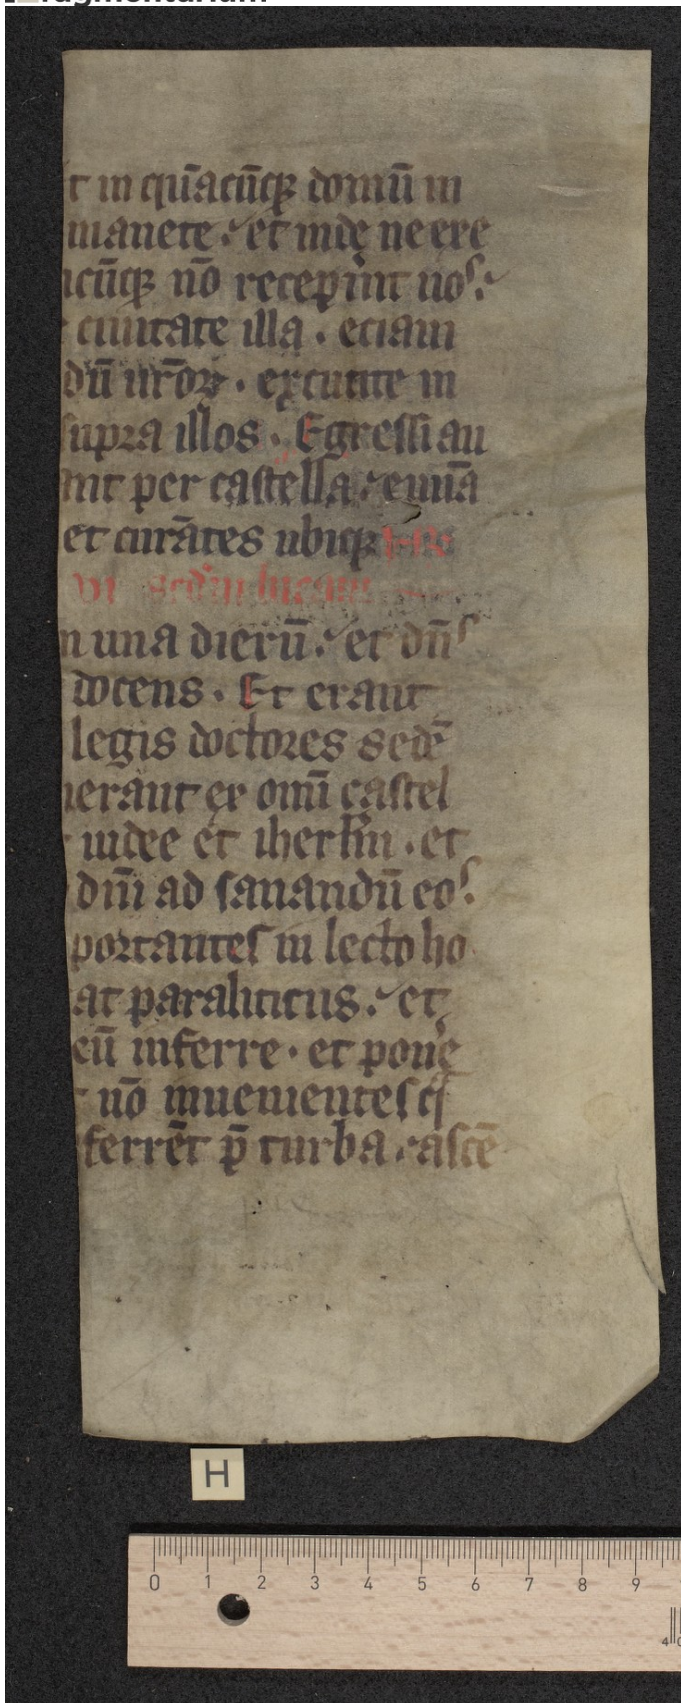 t in quācūcꝫ domū in
manete ⸵ et inde ne exe
cūcꝫ nō recep̄int uoſ ⸵
ciuitate illa . etiam
dū ur̄oꝝ . excutite in
ſupra illos . Egreſſi au
ant per caſtella ⸵ euuā
et curātes ubiqꝫ
vi ſcd'm lucam
n una dierū ⸵ et dn̄ſ
docens . Et erant
legis doctores sedē
nerant ex omī caſtel
iudee et iherl̄m . et
dn̄i ad ſanandū eoſ .
portanteſ in lecto ho
at paraliticus ⸵ et
eū inferre . et pone
nō inuenienteſ q̄
ferrēt p̄ turba ⸵ aſcē
H
0 1 2 3 4 5 6 7 8 9